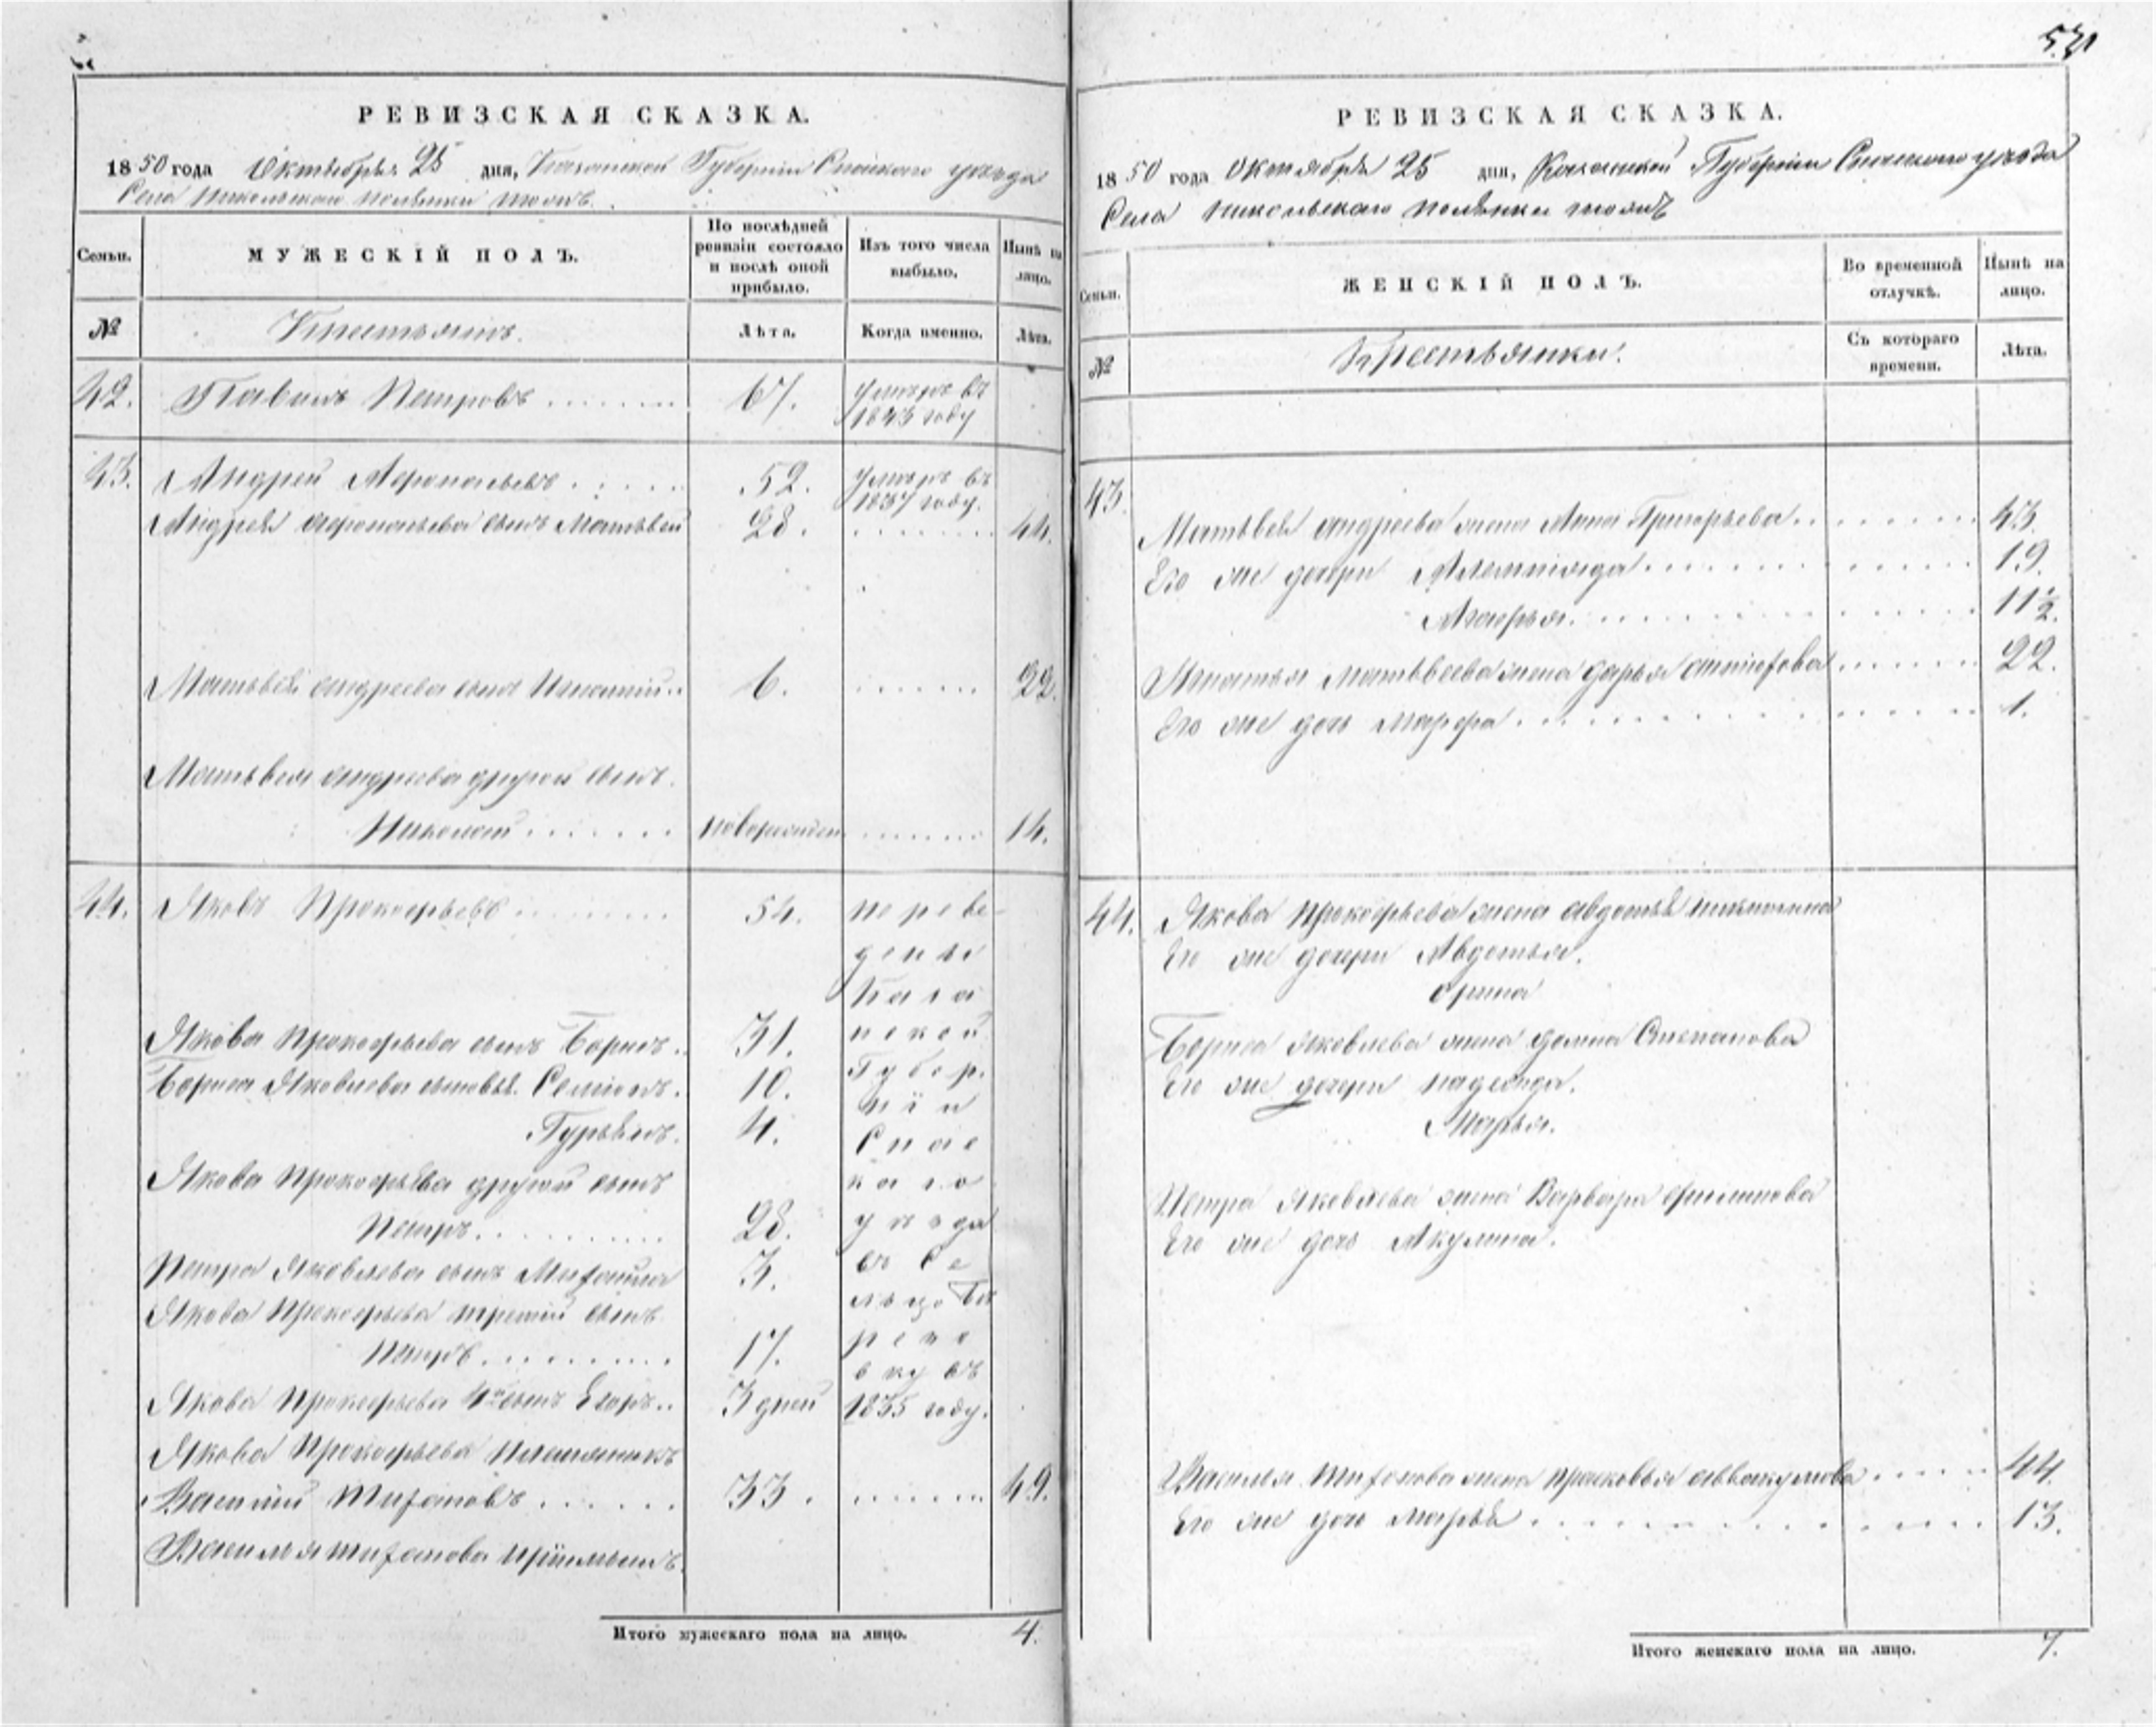 РЕВИЗСКАЯ СКАЗКА.
1850 года Октября 25 дня, Казанской Губернии Спаскаго уезда
Села Никольскаго Полянки тожъ.
Семьи.
МУЖЕСКІЙ ПОЛЪ.
По послѣдней ревизіи состояло и послѣ оной прибыло.
Изъ того числа выбыло.
Нынѣ на лицо.
№
Крестьянъ.
Лѣта.
Когда именно.
Лѣта.
42. Павелъ Петровъ 67. умеръ въ 1843 году
43. Андрей 52. умеръ въ 1837 году.
Андрея сынъ Матьвей 28. 44.
Матьвея Андреева сынъ Игнатий 6. 22.
Матьвея Андреева другой сынъ
Николай новорожден 14.
44. Яковъ Прокофьевъ 54. переве
дены
Каза
нской
Якова Прокофьева сынъ Борисъ 31.
Губер.
Бориса Яковлева сыновья Семионъ. 10.
нїи
Гурьянъ. 4.
Спас
Якова Прокофьева другой сынъ
каго
Петръ 28. уезда
Петра Яковлева сынъ Михайла 3. въ Се
Якова Прокофьева третий сынъ
льцо
Петръ 17.
вку въ
Якова Прокофьева 4й сынъ Егоръ 3 дней 1835 году.
Якова Прокофьева племянникъ
Василий Тихановъ 33. 49.
Василья Тиханова приимышъ
Итого мужескаго пола на лицо. 4.
РЕВИЗСКАЯ СКАЗКА.
1850 года Октября 25 дня, Казанской Губернии Спаскаго уезда
Села Никольскаго Полянки тожъ
Семьи.
ЖЕНСКІЙ ПОЛЪ.
Во временной отлучкѣ.
Нынѣ на лицо.
№
Крестьянки.
Съ котораго времени.
Лѣта.
43. Матьвея Андреева жена Анна Григорьева 43.
Его же дочери 19.
Марья 11½.
Игнатья Матьвеева жена Дарья 22.
Его же дочь Марфа 1.
44. Якова Прокофьева жена Авдотья Никитина
Его же дочери Авдотья.
Орина
Бориса Яковлева жена Домна Степанова
Его же дочери Надежда.
Марья.
Петра Яковлева жена Варвара Филипова
Его же дочь Акулина.
Василья Тиханова жена Прасковья Аввакумова 44.
Его же дочь Марья 13.
Итого женскаго пола на лицо. 7.